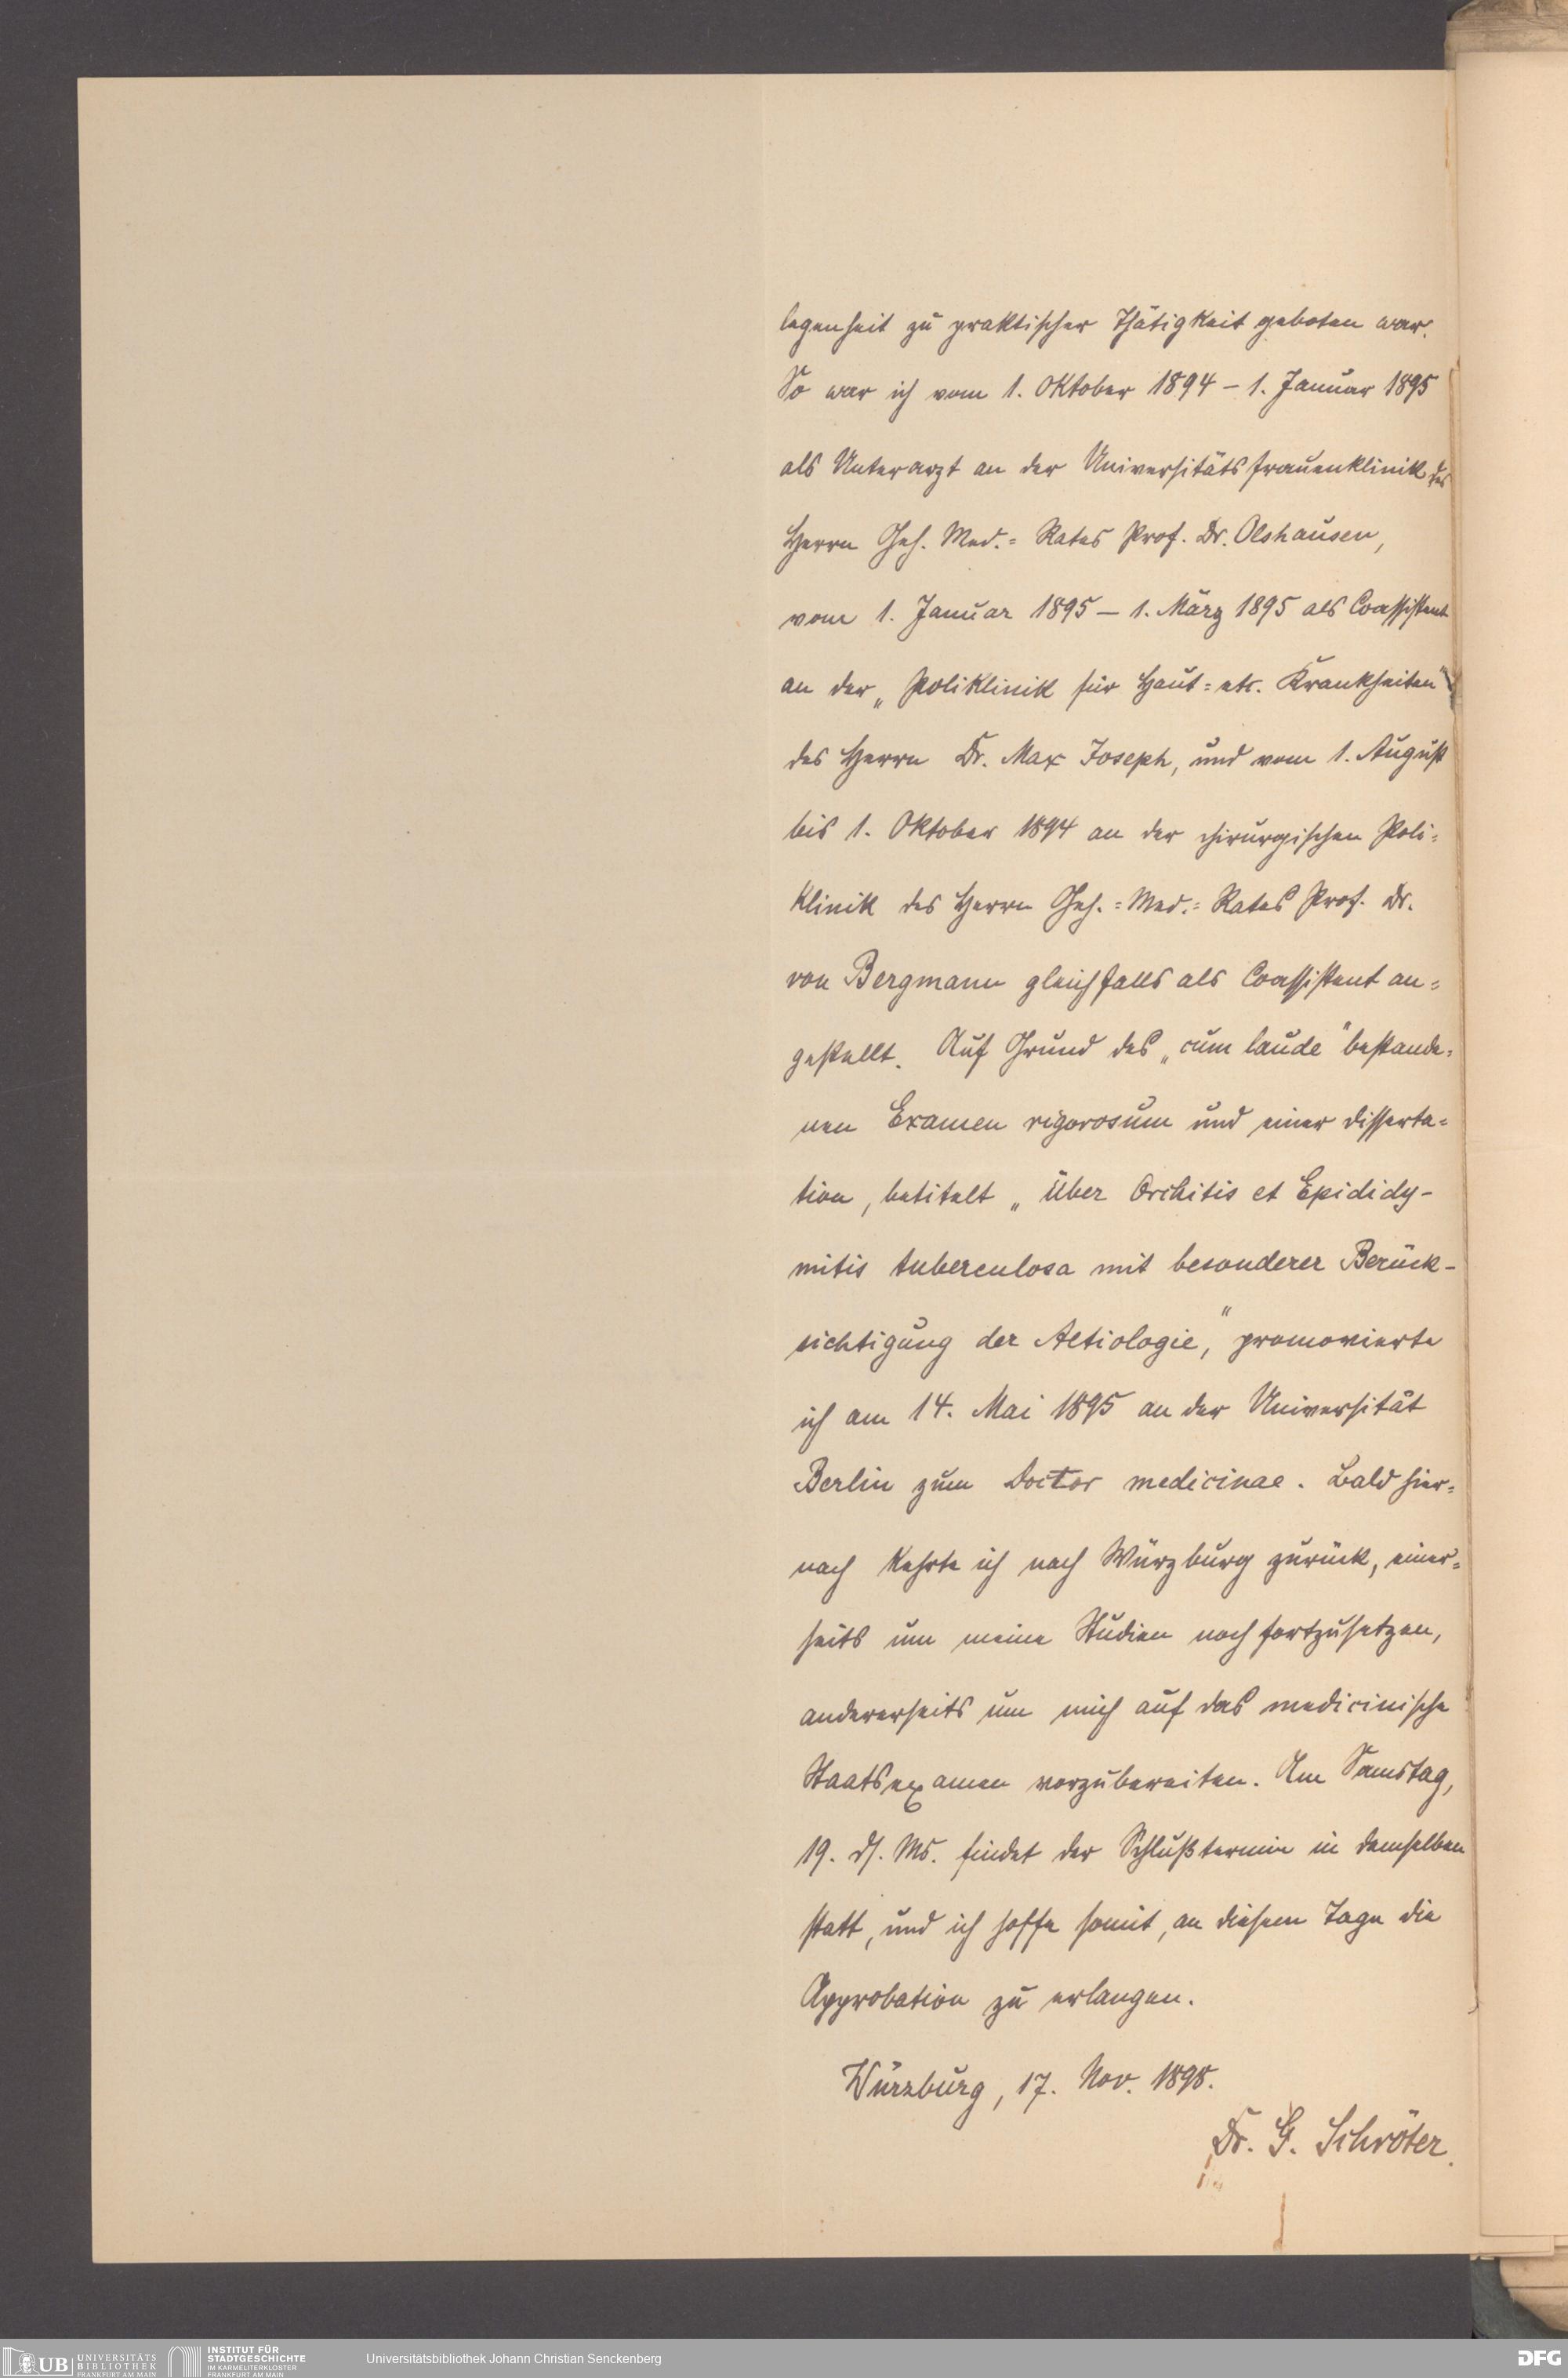 legenheit zu praktischer Thätigkeit geboten war.
So war ich vom 1. Oktober 1894 – 1. Januar 1895
als Unterarzt an der Universitätsfrauenklinik des
Herrn Geh. Med.= Rates Prof. Dr. Olshausen,
vom 1. Januar 1895 – 1. März 1895 als Coassistent
an der „Poliklinik für Haut= etc. Krankheiten"
des Herrn Dr. Max Joseph, und vom 1. August
bis 1. Oktober 1894 an der chirurgischen Poli=
klinik des Herrn Geh.= Med.= Rates Prof. Dr.
von Bergmann gleichfalls als Coassistent an=
gestellt. Auf Grund des „cum laude" bestande=
nen Examen rigorosum und einer Disserta=
tion, betitelt „Über Orchitis et Epididy-
mitis tuberculosa mit besonderer Berück-
sichtigung der Aetiologie," promovierte
ich am 14. Mai 1895 an der Universität
Berlin zum Doctor medicinae. Bald hier=
nach kehrte ich nach Würzburg zurück, einer=
seits um meine Studien noch fortzusetzen,
andererseits um mich auf das medicinische
Staatsexamen vorzubereiten. Am Samstag,
19. ds. Ms. findet der Schlußtermin in demselben
statt, und ich hoffe somit, an diesem Tage die
Approbation zu erlangen.
Würzburg, 17. Nov. 1898.
Dr. G. Schröter.
UB UNIVERSITÄTS
BIBLIOTHEK
FRANKFURT AM MAIN
INSTITUT FÜR
STADTGESCHICHTE
IM KARMELITERKLOSTER
FRANKFURT AM MAIN
Universitätsbibliothek Johann Christian Senckenberg
DFG